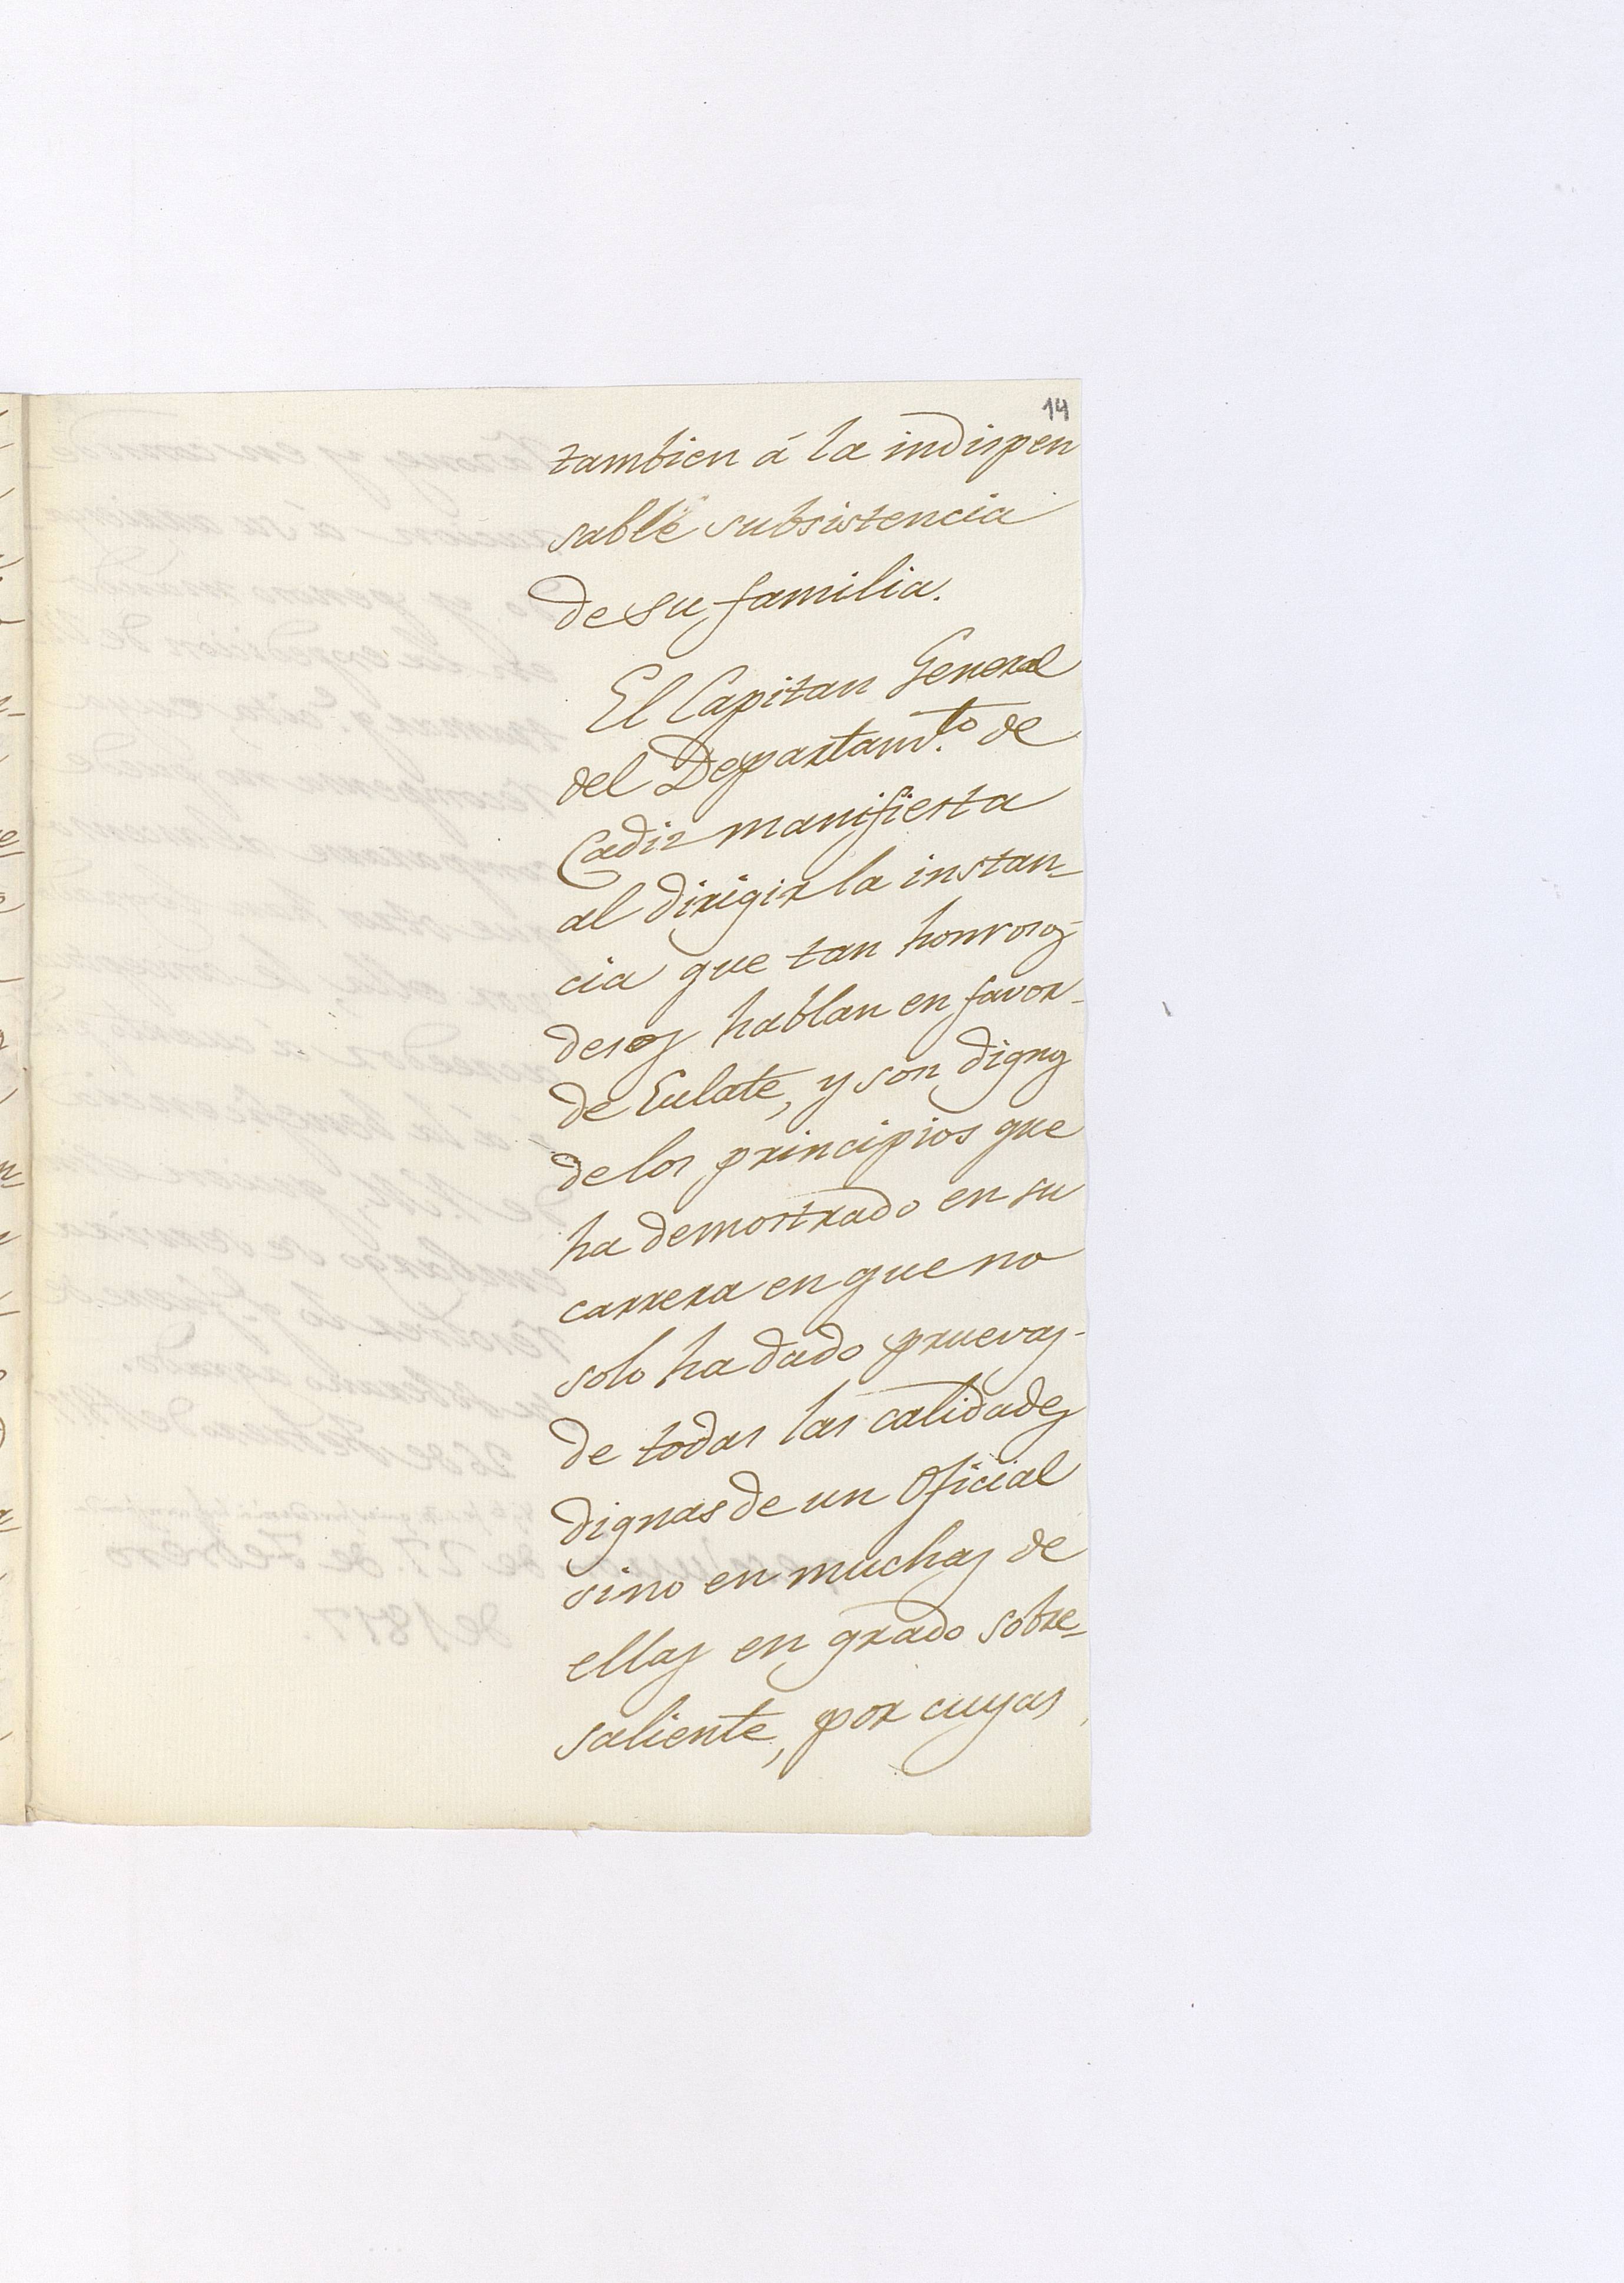 14
tambien á la indispen
sable subsistencia
de su familia.
El Capitan General
del Departam.to de
Cadiz manifiesta
al dirigir la instan-
cia que tan honrosos
deseos hablan en favor
de Eulate, y son dignos
de los principios que
ha demostrado en su
carrera en que no
solo ha dado pruevas
de todas las calidades
dignas de un Oficial
sino en muchas de
ellas en grado sobre-
saliente, por cuyas